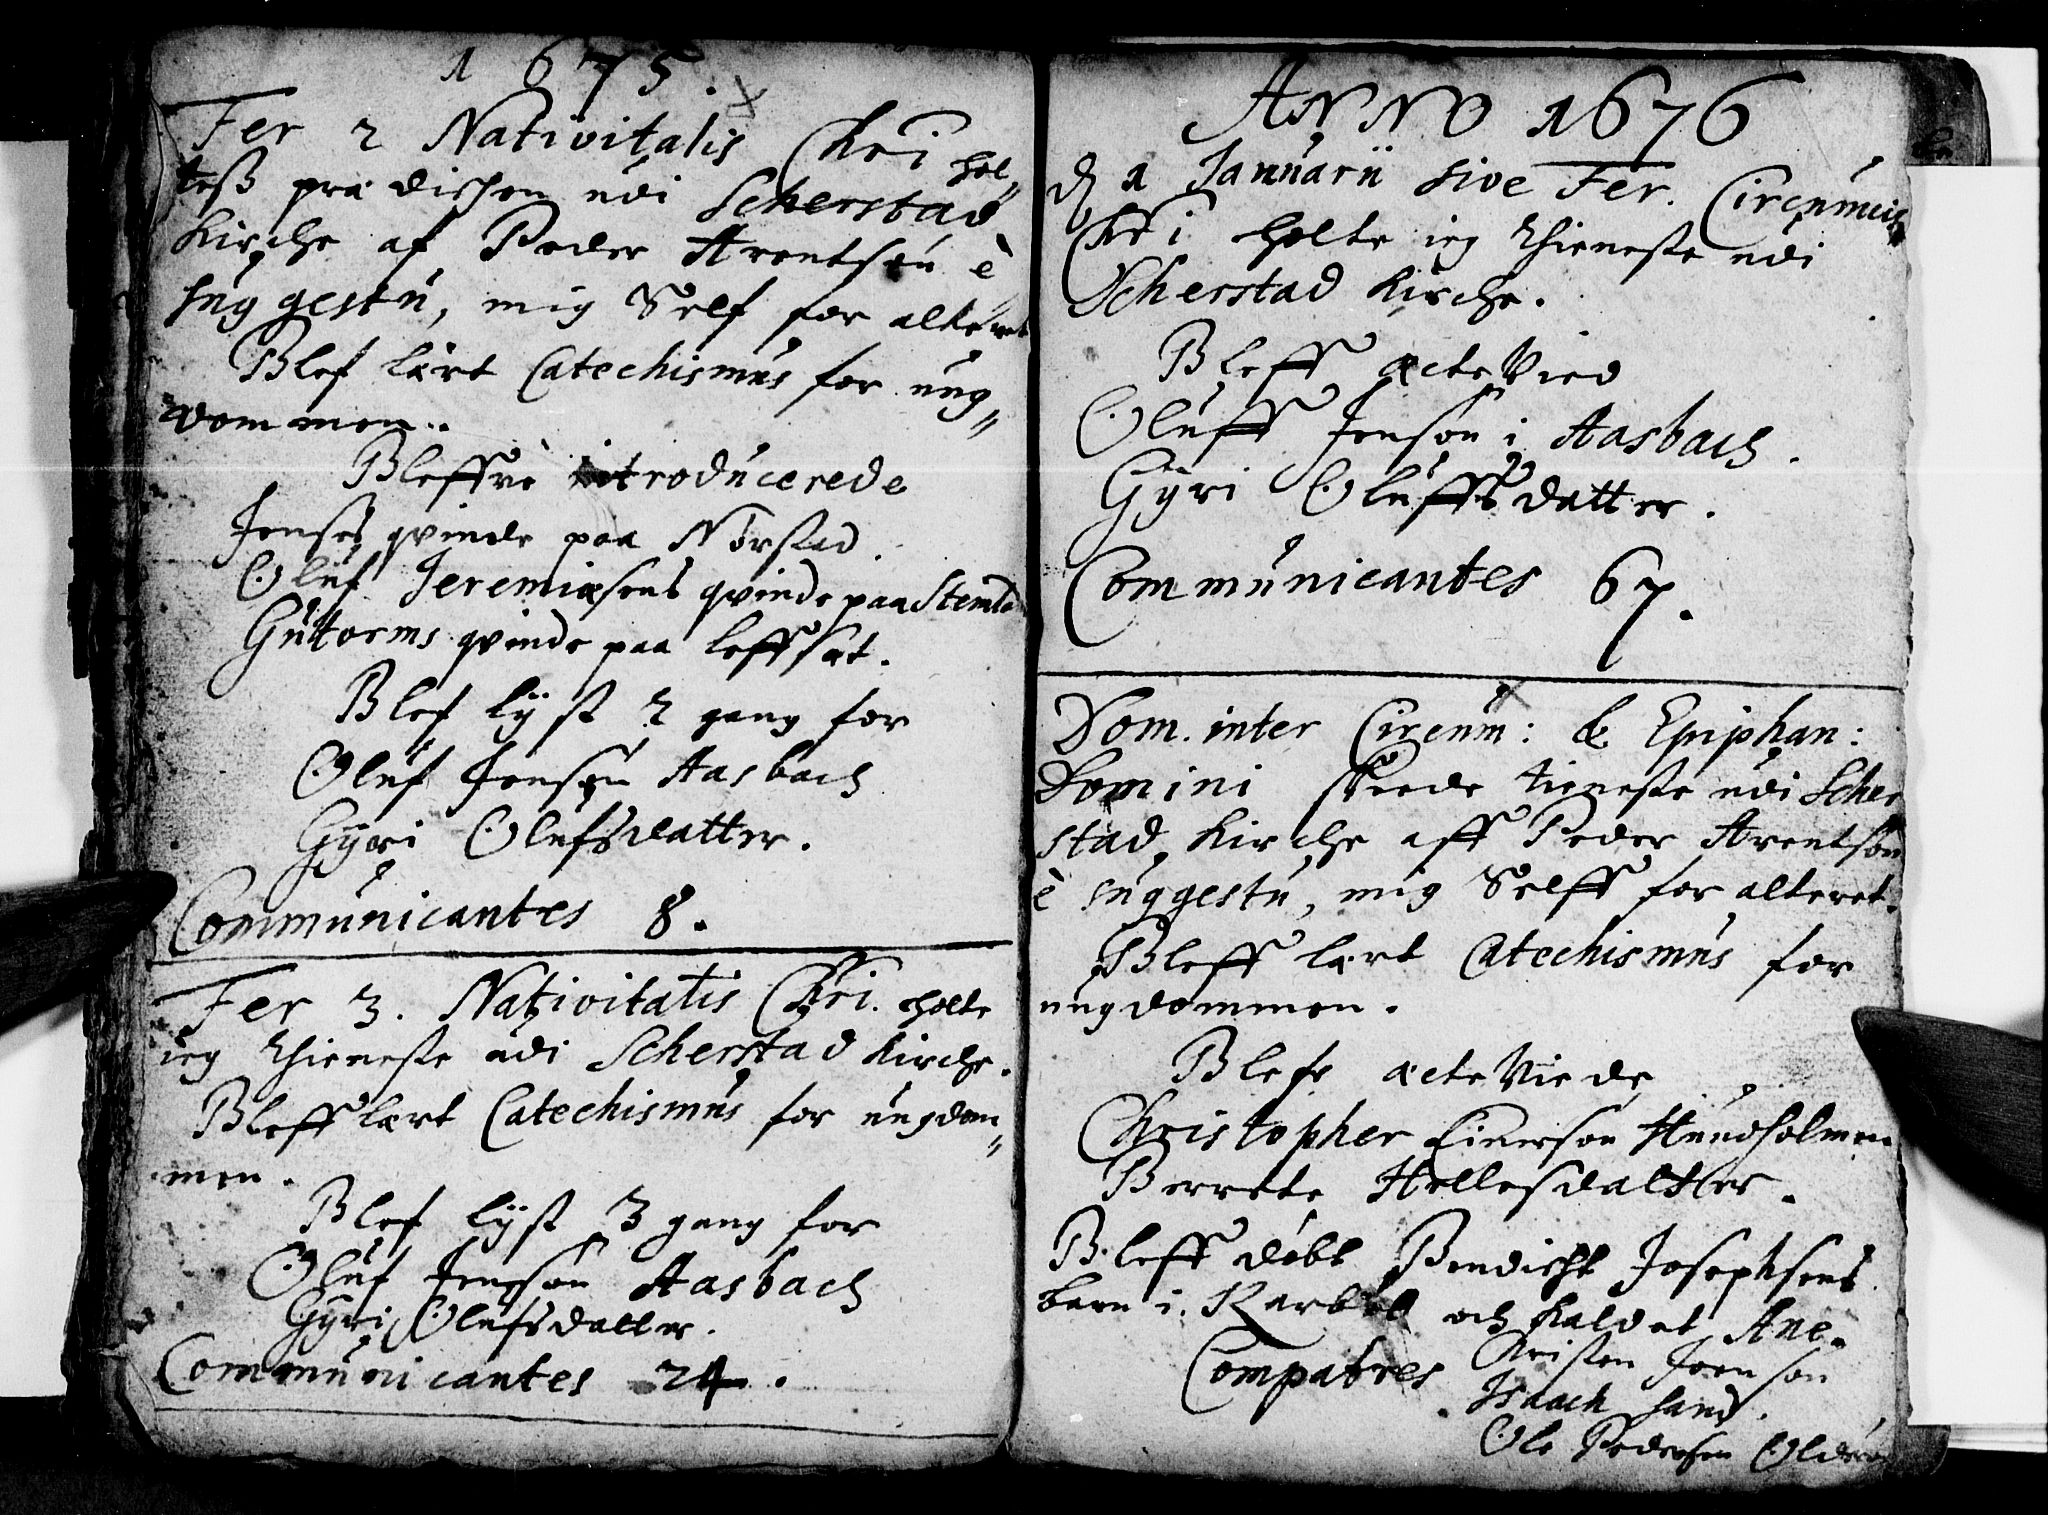 1675.
Fer 2 Nativitatis Chri hol„
teß prædichen udi Scherstad
Kirche af Peder Arentsøn è
suggestu, mig Self for alteret
Blef lært Catechismus for ung„
dommen.
Bleffve introducerede
Jenses qvinde paa Nørstad.
Oluf Jeremiæsens qvinde paa Stemla
Guttorms qvinde paa leffset.
Blef lyst 2 gang for
Oluf Jensøn Aasbach
Gyri Olufsdatter.
Communicantes 8.
Fer 3. Nativitatis Chri. holte
ieg thieneste udi Scherstad Kirche.
Bleff lært Catechismus for ungdom„
men.
Blef lyst 3 gang for
Oluf Jensøn Aasbach
Gyri Olufsdatter.
Communicantes 24.
ANNO 1676
d 1 Januarii sive Fer. Circumcis
Chri holte ieg thieneste udi
Scherstad Kirche.
Bleff ecte Vied
Oluff Jensøn i Aasbach.
Gyri Oluffsdatter.
Communicantes 67.
Dom. inter Circum: & Epiphan:
Domini skeede tieneste udi Scher
stad Kirche aff Peder Arentsøn
è suggestu, mig Selff for alteret.
Bleff lært Catechismus for
ungdommen.
Blefe ecte Viede
Christopher Einerson Hundholmen
Berrete Hellesdatter.
Bleff døbt Bendicht Josephsens
barn i och kaldet Ane.
Compatres Christen Joensøn
Isaach sand.
Ole Pedersen